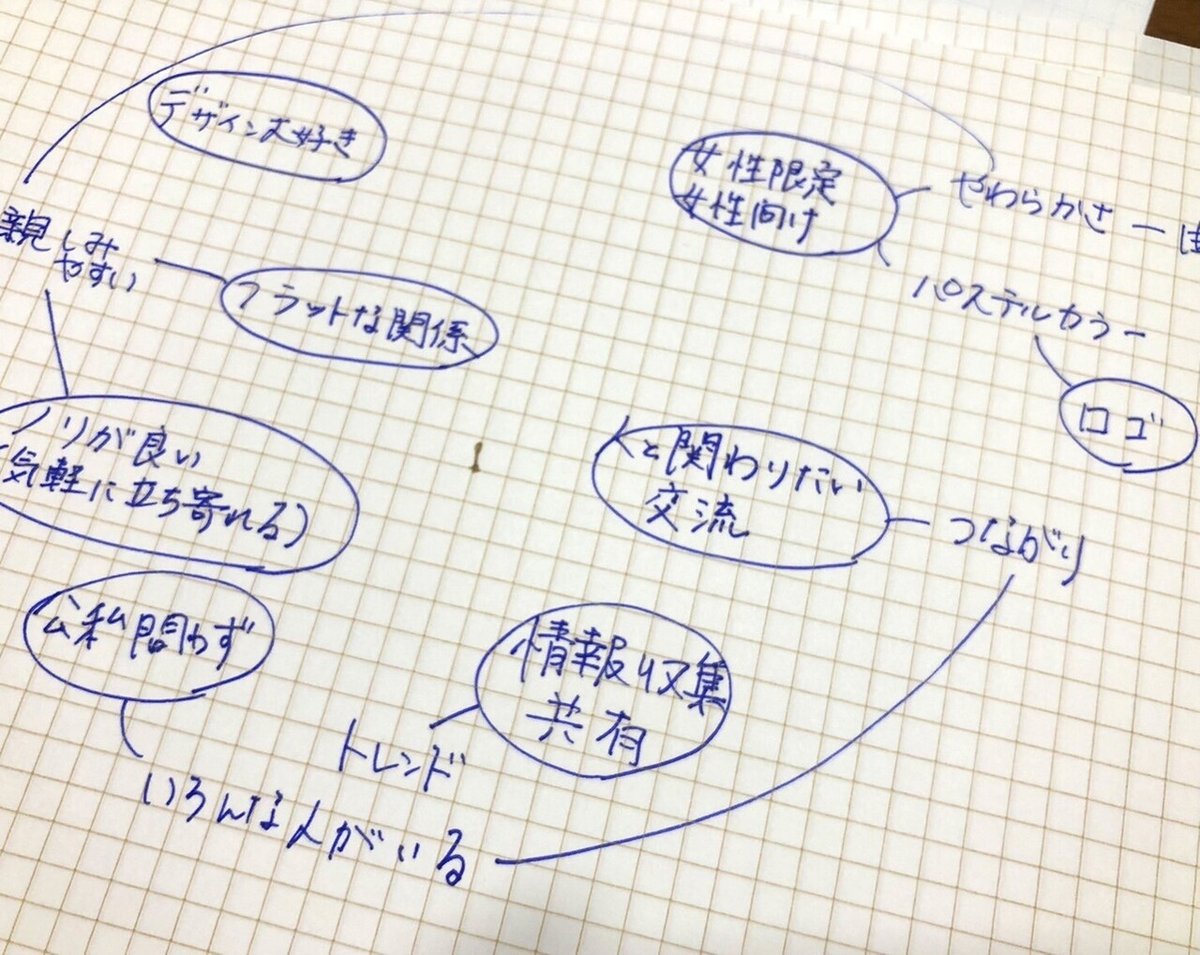 デザイン大好き
女性限定
女性向け
やわらかさ
親しみ
やすい
フラットな関係
パステルカラー
ロゴ
ノリが良い
(気軽に立ち寄れる)
人と関わりたい
交流
つながり
公私問わず
情報収集
共有
トレンド
いろんな人がいる